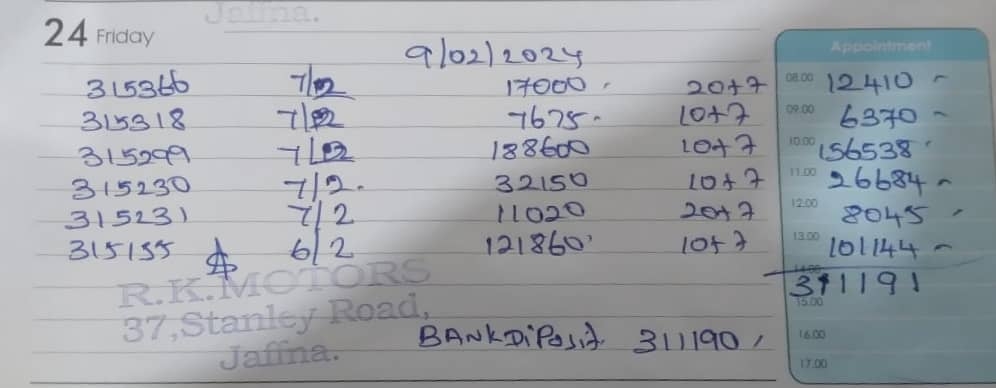 Jaffna.
24 Friday
9/02/2024
Appointment
315366 7/2 17000 20+7 08.00 12410
315318 7/2 7675 10+7 09.00 6370
315299 7/2 188600 10+7 10.00 156538
315230 7/2 32150 10+7 11.00 26684
315231 7/2 11020 20+7 12.00 8045
315155 6/2 121860 10+7 13.00 101144
311191
R.K.MOTORS 15.00
37,Stanley Road,
BANK DiPosit 311190 16.00
Jaffna. 17.00